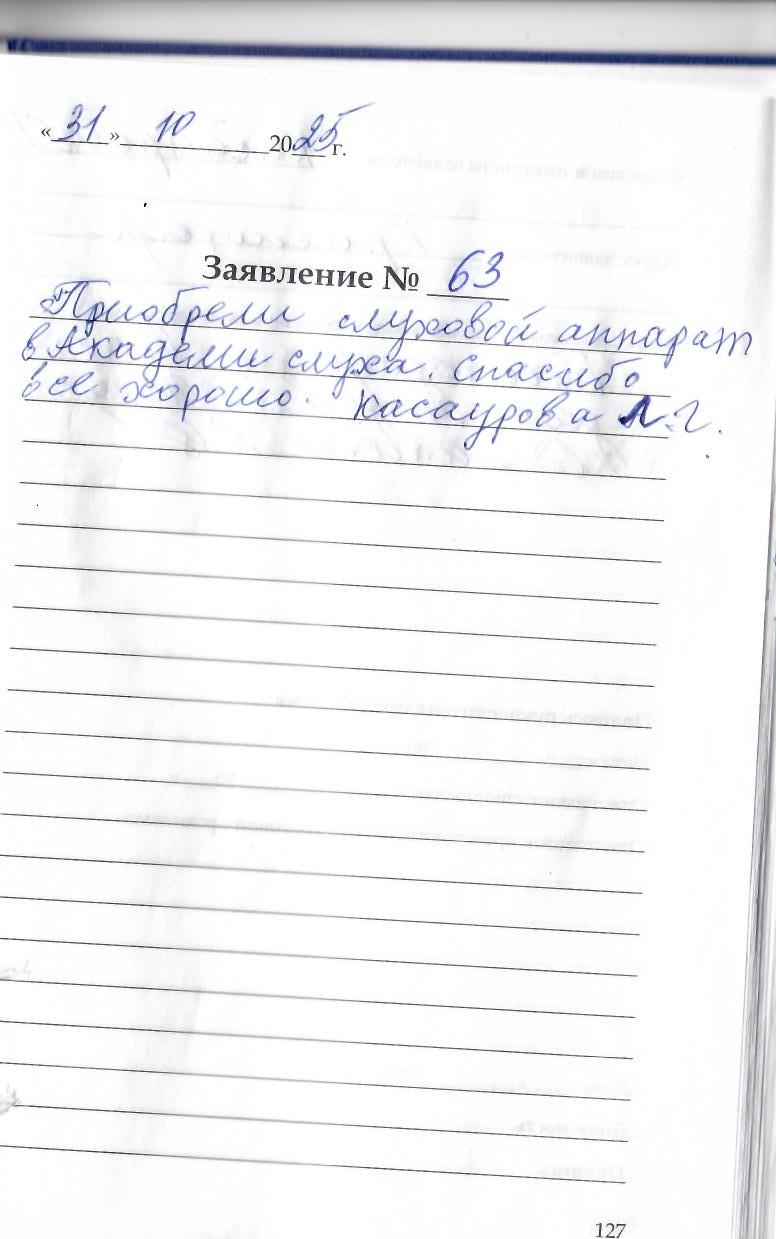 «31» 10 2025 г.
Заявление № 63
Приобрели слуховой аппарат
в Академии слуха. Спасибо
все хорошо. Касаурова Л.Г.
127